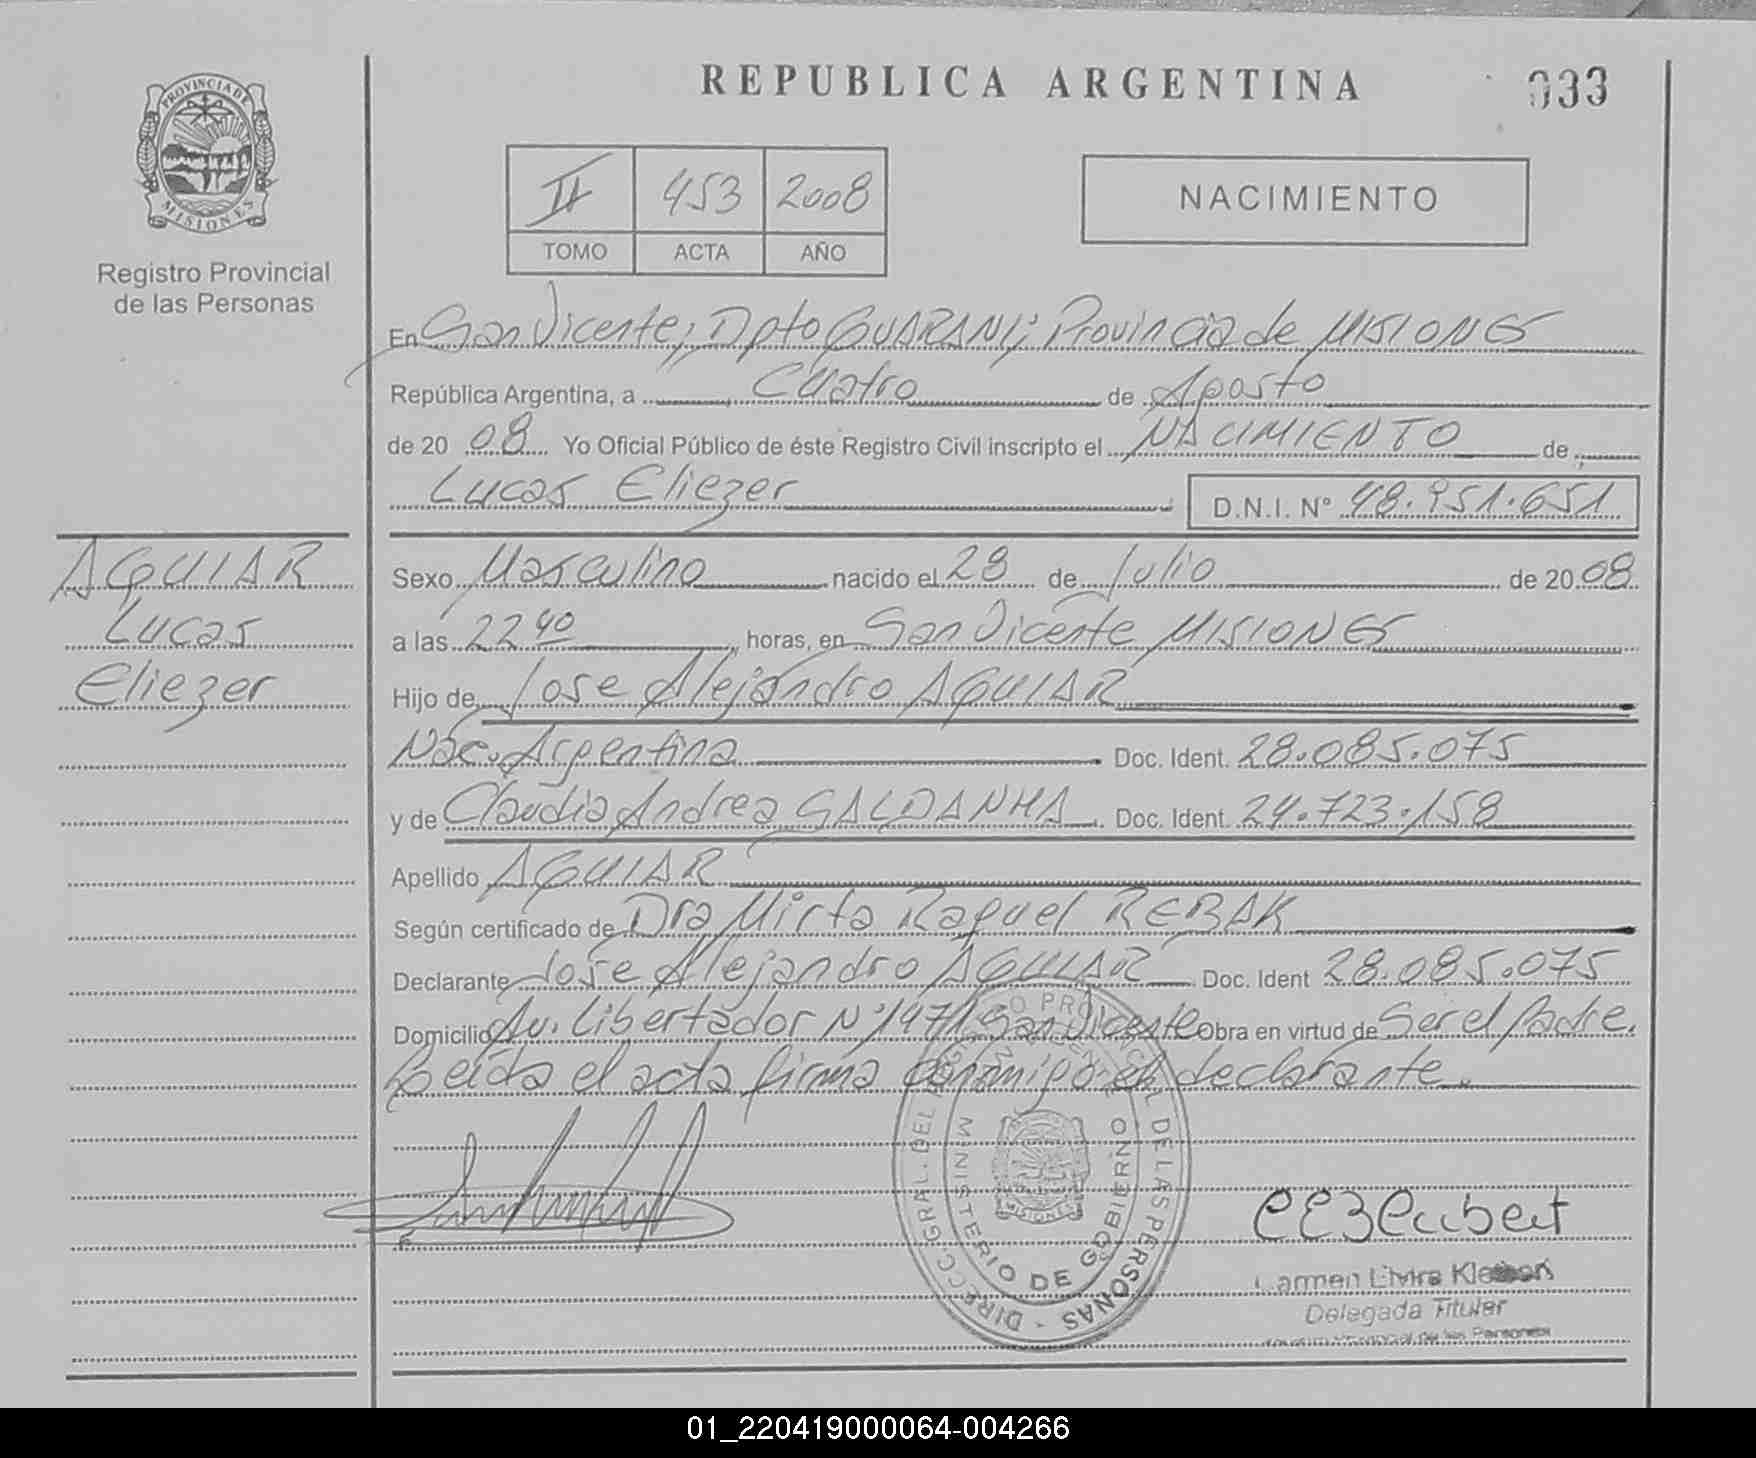 REPUBLICA ARGENTINA
033
PROVINCIA DE MISIONES
Registro Provincial
de las Personas
II 453 2008
TOMO ACTA AÑO
NACIMIENTO
En San Vicente, Dpto GUARANI; Provincia de MISIONES
República Argentina, a Cuatro de Agosto
de 20 08 Yo Oficial Público de éste Registro Civil inscripto el NACIMIENTO de
Lucas Eliezer D.N.I. Nº 48.951.651
AGUIAR
Lucas
Eliezer
Sexo Masculino nacido el 28 de Julio de 20 08
a las 22 40 horas, en San Vicente MISIONES
Hijo de Jose Alejandro AGUIAR
Nac. Argentina Doc. Ident. 28.085.075
y de Claudia Andrea GALDANHA Doc. Ident. 24.723.158
Apellido AGUIAR
Según certificado de Dra Mirta Raquel REBAK
Declarante Jose Alejandro AGUIAR Doc. Ident 28.085.075
Domicilio Av. Libertador Nº 1471 San Vicente Obra en virtud de Ser el Padre.
Leida el acta firma conmigo el declarante.
DIRECC. GRAL. DEL DE LAS PERSONAS
MINISTERIO DE GOBIERNO
MISIONES
Carmen Elvira
Delegada Titular
de las Personas
01_220419000064-004266